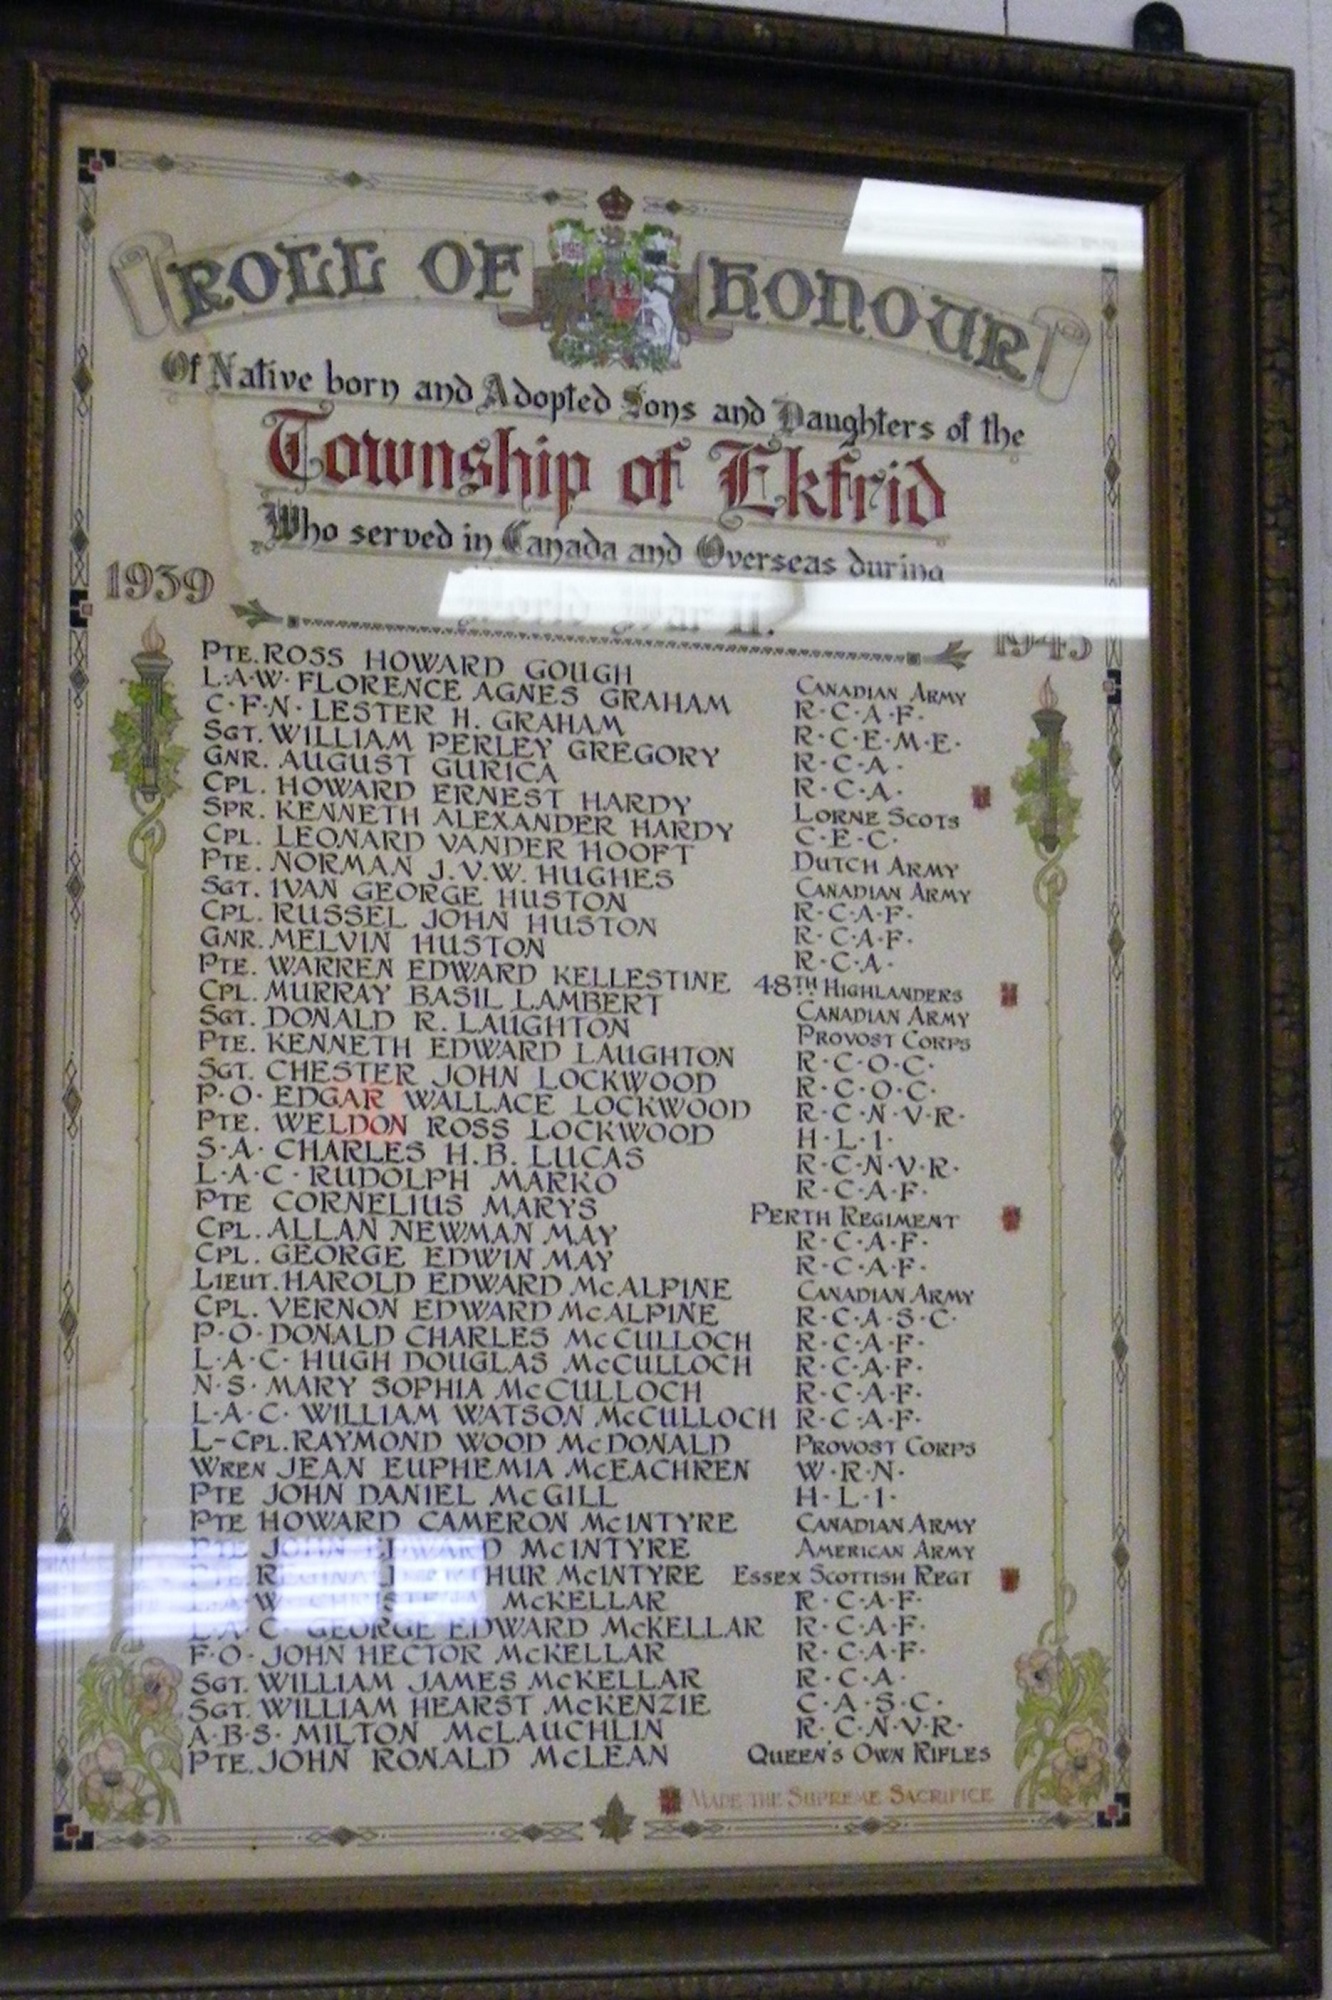 ROLL OF HONOUR
Of Native born and Adopted Sons and Daughters of the
Township of Ekfrid
Who served in Canada and Overseas during
World War II.
1939 1945
PTE. ROSS HOWARD GOUGH CANADIAN ARMY
L·A·W· FLORENCE AGNES GRAHAM R·C·A·F·
C·F·N· LESTER H. GRAHAM R·C·E·M·E·
SGT. WILLIAM PERLEY GREGORY R·C·A·
GNR. AUGUST GURICA R·C·A·
CPL. HOWARD ERNEST HARDY LORNE SCOTS
SPR. KENNETH ALEXANDER HARDY C·E·C·
CPL. LEONARD VANDER HOOFT DUTCH ARMY
PTE. NORMAN J.V.W. HUGHES CANADIAN ARMY
SGT. IVAN GEORGE HUSTON R·C·A·F·
CPL. RUSSEL JOHN HUSTON R·C·A·F·
GNR. MELVIN HUSTON R·C·A·
PTE. WARREN EDWARD KELLESTINE 48TH HIGHLANDERS
CPL. MURRAY BASIL LAMBERT CANADIAN ARMY
SGT. DONALD R. LAUGHTON PROVOST CORPS
PTE. KENNETH EDWARD LAUGHTON R·C·O·C·
SGT. CHESTER JOHN LOCKWOOD R·C·O·C·
P·O· EDGAR WALLACE LOCKWOOD R·C·N·V·R·
PTE. WELDON ROSS LOCKWOOD H·L·I·
S·A· CHARLES H.B. LUCAS R·C·N·V·R·
L·A·C· RUDOLPH MARKO R·C·A·F·
PTE CORNELIUS MARYS PERTH REGIMENT
CPL. ALLAN NEWMAN MAY R·C·A·F·
CPL. GEORGE EDWIN MAY R·C·A·F·
LIEUT. HAROLD EDWARD McALPINE CANADIAN ARMY
CPL. VERNON EDWARD McALPINE R·C·A·S·C·
P·O· DONALD CHARLES McCULLOCH R·C·A·F·
L·A·C· HUGH DOUGLAS McCULLOCH R·C·A·F·
N·S· MARY SOPHIA McCULLOCH R·C·A·F·
L·A·C· WILLIAM WATSON McCULLOCH R·C·A·F·
L-CPL. RAYMOND WOOD McDONALD PROVOST CORPS
WREN JEAN EUPHEMIA McEACHREN W·R·N·
PTE JOHN DANIEL McGILL H·L·I·
PTE HOWARD CAMERON McINTYRE CANADIAN ARMY
PTE JOHN EDWARD McINTYRE AMERICAN ARMY
McINTYRE ESSEX SCOTTISH REGT
L·A·W· McKELLAR R·C·A·F·
L·A·C· GEORGE EDWARD McKELLAR R·C·A·F·
F·O· JOHN HECTOR McKELLAR R·C·A·F·
SGT. WILLIAM JAMES McKELLAR R·C·A·
SGT. WILLIAM HEARST McKENZIE C·A·S·C·
A·B·S· MILTON McLAUCHLIN R·C·N·V·R·
PTE. JOHN RONALD McLEAN QUEEN'S OWN RIFLES
MADE THE SUPREME SACRIFICE